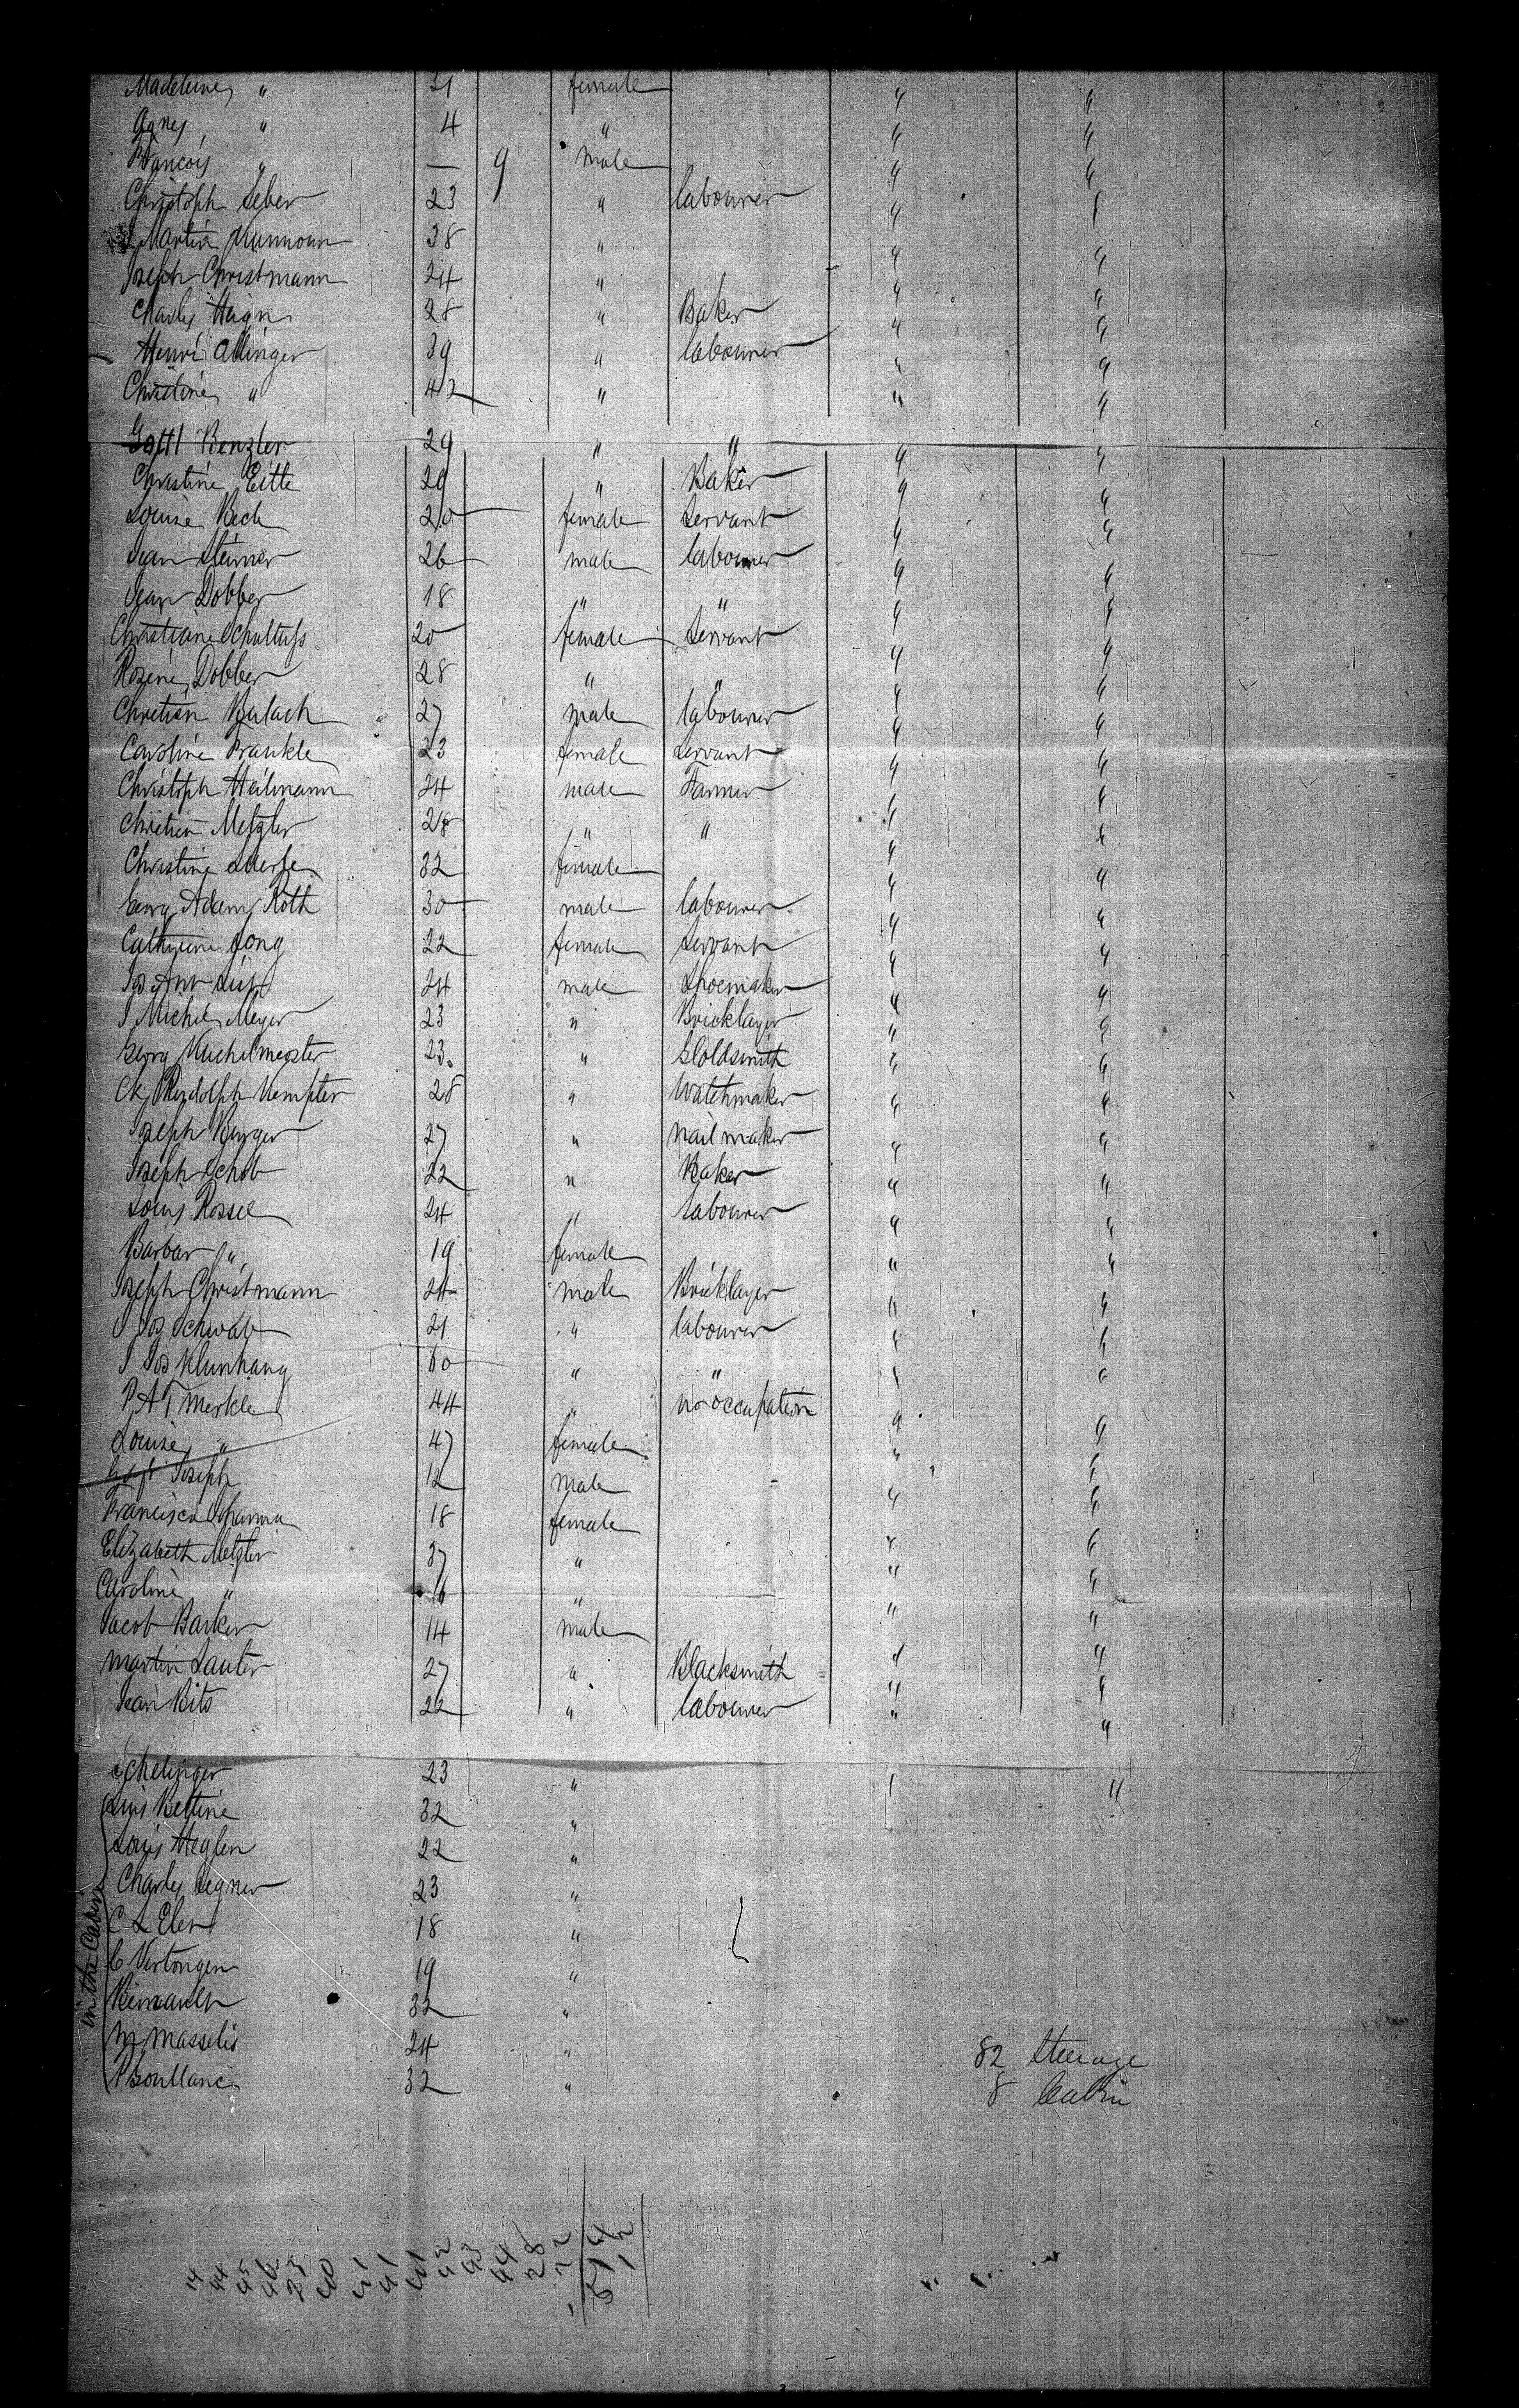 Madeleine " 31 female " "
Agnes " 4 " " "
Francois " — 9 male " "
Christoph Seber 23 " labourer "
J Martin 38 " " "
Joseph Christmann 24 " " "
Charles Heign 28 " Baker " "
Henri Allinger 39 " labourer " "
Christine " 42 " " "
Gottl Benzler 29 " " " "
Christine Eitte 29 " Baker " "
Louise Beck 20 female Servant " "
Jean Steiner 26 male labourer " "
Jean Dobber 18 " " " "
Christiane Schultuss 20 female Servant " "
Rosine Dobber 28 " " " "
Chretien Bulach 27 male labourer " "
Caroline Frankle 23 female Servant " "
Christoph Heilmann 24 male Farmer " "
Chretien Metzler 28 " " " "
Christine 32 female " "
Georg Adam Roth 30 male labourer " "
Catherine Jong 22 female Servant " "
Jos Ant List 24 male Shoemaker " "
J Michel Meyer 23 " Bricklayer " "
Georg Muchelmegster 23 " Goldsmith " "
Ch Rudolph Kempter 28 " Watchmaker " "
Joseph Burger 27 " nail maker " "
Joseph Schob 22 " Baker " "
Louis Rossel 24 " labourer " "
Barbar " 19 female " "
Joseph Christmann 24 male Bricklayer " "
J Jos Schwab 21 " labourer " "
J Jos Klunkang 60 " " " "
P A T Merkle 44 " no occupation " "
Louise " 47 female " "
Joseph 12 male " "
Francisca Scharma 18 female " "
Elizabeth Metzler 37 " " "
Caroline " 16 " " "
Jacob Barker 14 male " "
Martin Lauter 27 " Blacksmith " "
Jean Bits 22 " labourer " "
Schelinger 23 " " "
Louis Bettine 32 "
Louis Heglen 22 "
Charles Segner 23 "
C L Eler 18 "
C Vertongen 19 "
in the Cabin
Bernault 32 "
M Masselis 24 "
P Boullanc 32 "
82 Steerage
8 Cabin